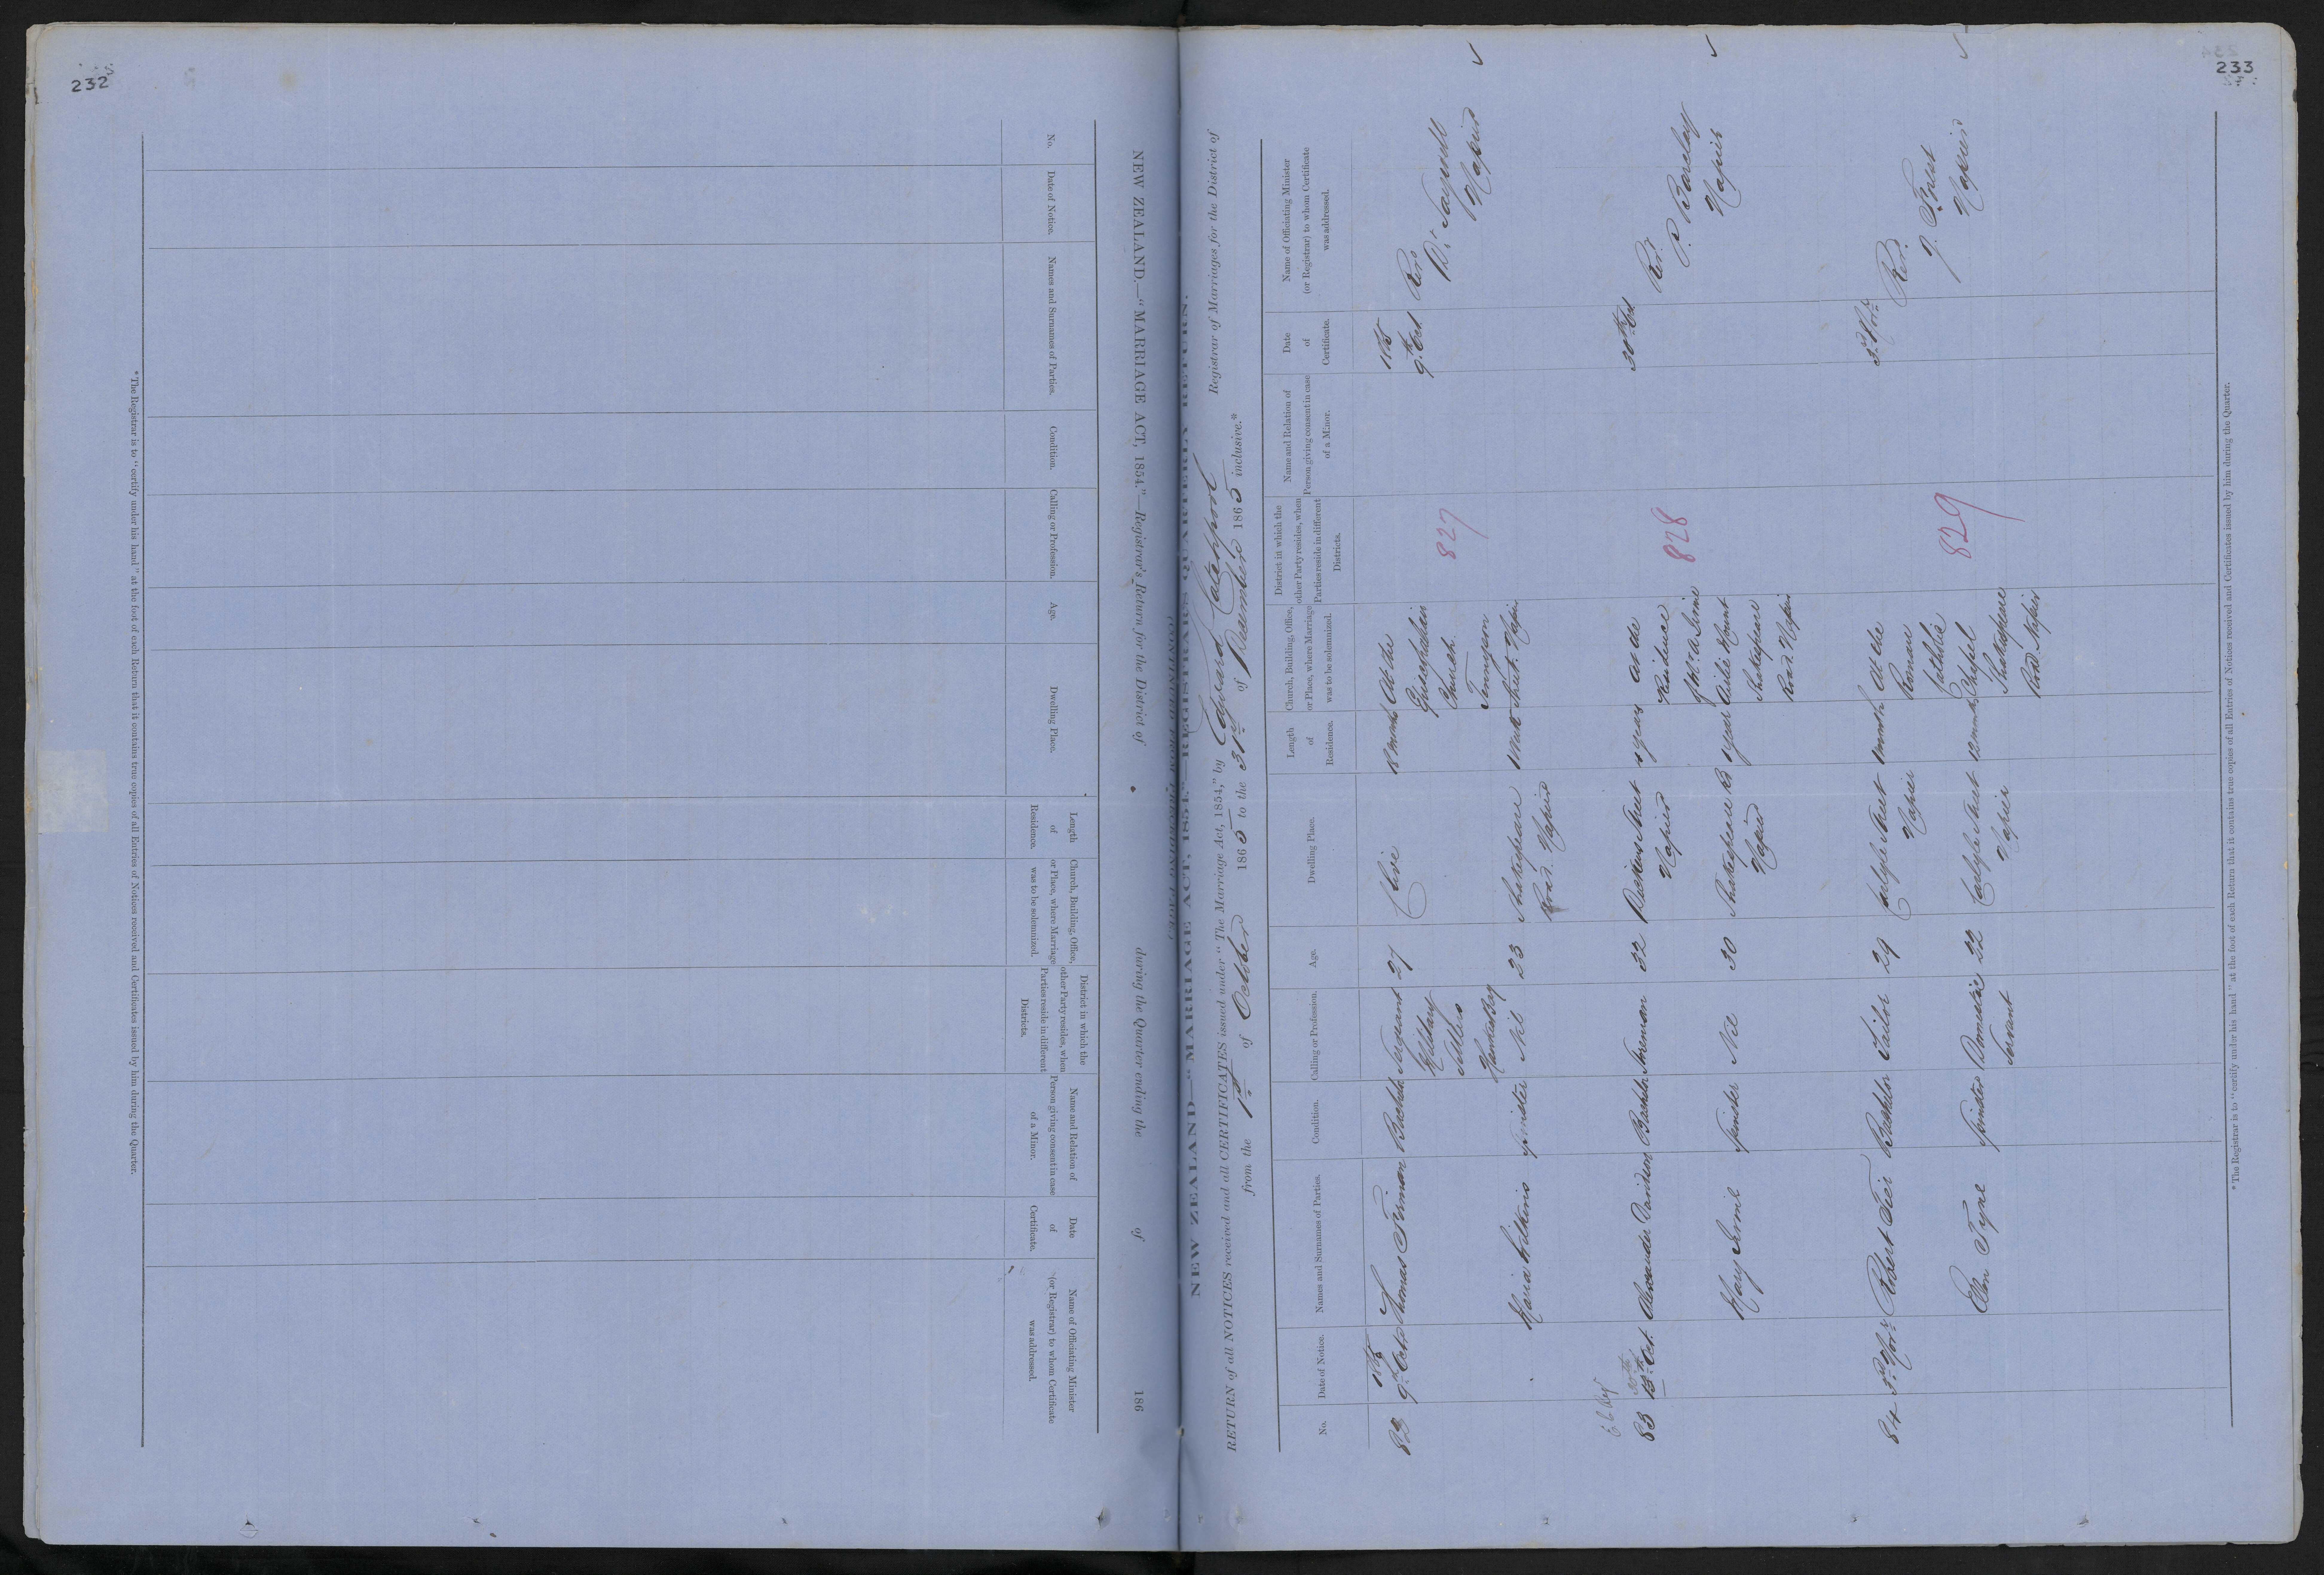 232
NEW ZEALAND.—"MARRIAGE ACT, 1854."—Registrar's Return for the District of during the Quarter ending the of 186
No.
Date of Notice.
Names and Surnames of Parties.
Condition.
Calling or Profession.
Age.
Dwelling Place.
Length
of
Residence.
Church, Building, Office,
or Place, where Marriage
was to be solemnized.
District in which the
other Party resides, when
Parties reside in different
Districts.
Name and Relation of
Person giving consent in case
of a Minor.
Date
of
Certificate.
Name of Officiating Minister
(or Registrar) to whom Certificate
was addressed.
* The Registrar is to "certify under his hand" at the foot of each Return that it contains true copies of all Entries of Notices received and Certificates issued by him during the Quarter.
233
NEW ZEALAND—"MARRIAGE ACT, 1854." REGISTRAR'S QUARTERLY RETURN.
RETURN of all NOTICES received and all CERTIFICATES issued under "The Marriage Act, 1854," by Edward Catchpool Registrar of Marriages for the District of
from the 1st of October 1865 to the 31st of December 1865 inclusive.*
No.
Date of Notice.
Names and Surnames of Parties.
Condition.
Calling or Profession.
Age.
Dwelling Place.
Length
of
Residence.
Church, Building, Office,
or Place, where Marriage
was to be solemnized.
District in which the
other Party resides, when
Parties reside in different
Districts.
Name and Relation of
Person giving consent in case
of a Minor.
Date
of
Certificate.
Name of Officiating Minister
(or Registrar) to whom Certificate
was addressed.
82
1865
9th Octr
Thomas
Bachelor
Sergeant
Military
Settlers
Hawkes Bay
27
Clive
18 months
At the
Church
Tennyson
Street. Napier
827
1865
9th Oct
Revd
Napier
Maria Wilkins
Spinster
Nil
23
Shakespeare
Road. Napier
1 Week
83
30th
13th Oct.
Alexander Davidson
Bachelor
Storeman
32
Dickens Street
Napier
At the
Residence
Shakespeare
Road. Napier
828
30th Oct
Revd.
P. Barclay
Napier
Mary Irvine
Spinster
Nil
30
Shakespeare Rd
Napier
1 year
84
3rd Novr.
Robert
Bachelor
Tailor
29
Carlyle Street
Napier
1 month
At the
Roman
Catholic
Chapel
Shakespeare
Road. Napier
829
3rd Novr.
Revd.
Napier
Ellen
Spinster
Domestic
Servant
22
Carlyle Street
Napier
12 months
* The Registrar is to "certify under his hand" at the foot of each Return that it contains true copies of all Entries of Notices received and Certificates issued by him during the Quarter.